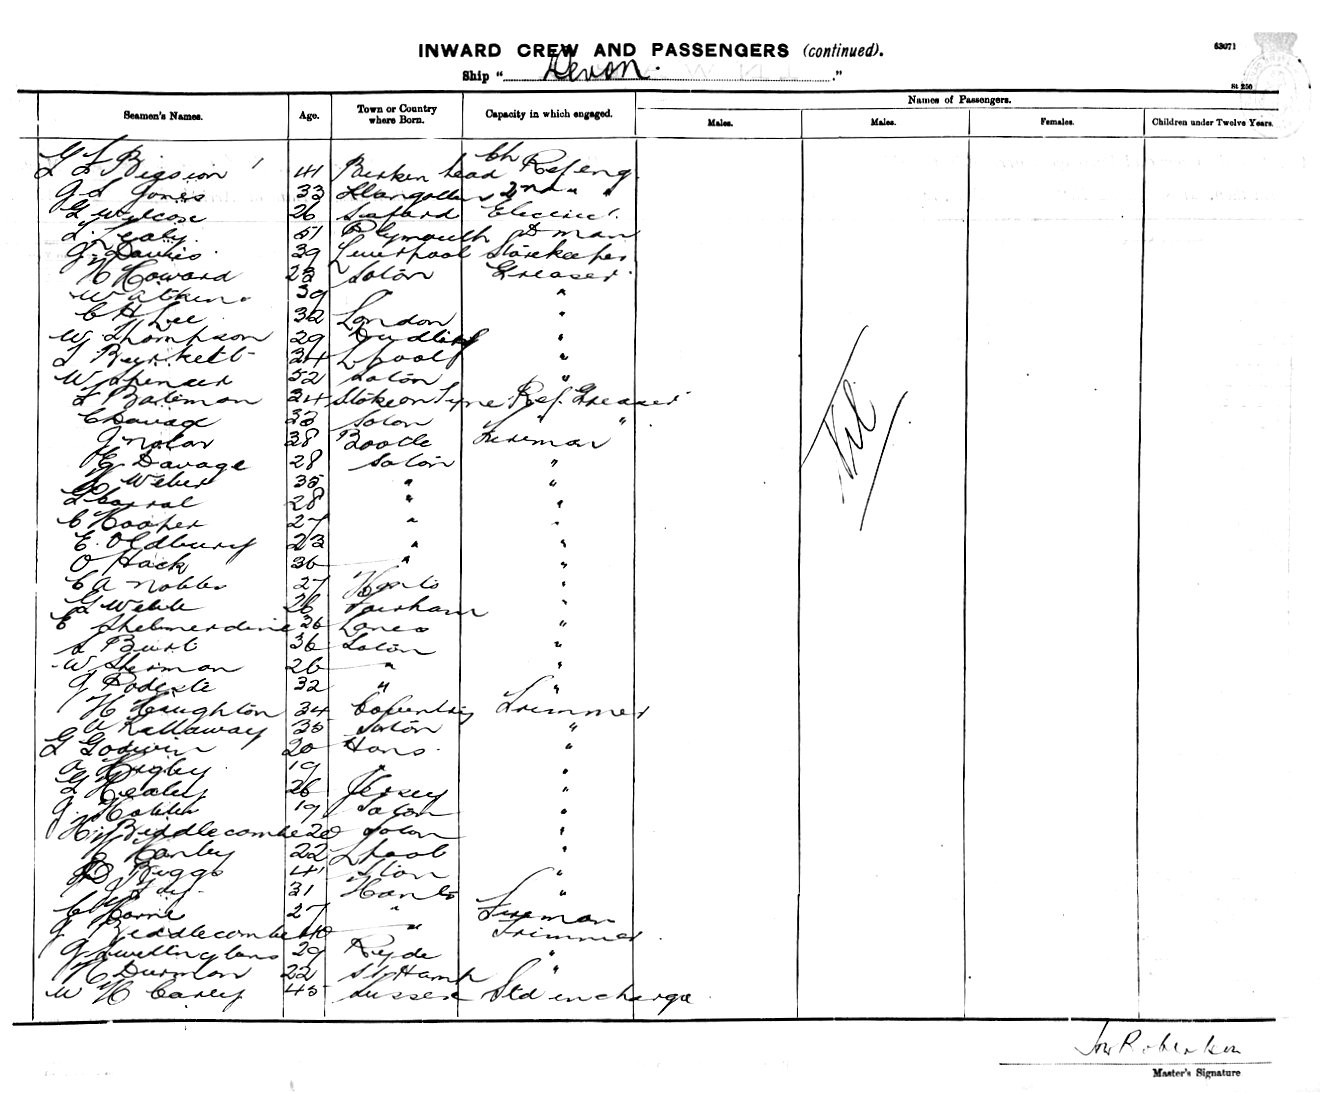 INWARD CREW AND PASSENGERS (continued).
63071
Ship " Devon. ."
St 250
Seamen's Names. Age. Town or Country where Born. Capacity in which engaged. Names of Passengers.
Males. Males. Females. Children under Twelve Years.
41 Birken head Ch Ref eng
G S Jones 33 Llangollen 2nd " "
G Wilcox 26 Seaford Electric
51 Plymouth D man
J. Davies 39 Liverpool Storekeeper
H Howard 23 Soton Greaser
Watkins 39 "
C H Lee 32 London "
W Thompson 29 "
T Birkett 34 Lpool "
W Spencer 52 Soton "
T Bateman 34 Stoke on Tyne Ref. Greaser
C Savage 33 Soton " "
J Nolan 38 Bootle Fireman
G Davage 28 Soton "
Weber 35 " "
28 " "
C Hooper 27 " "
E. Oldbury 23 " "
O Hack 36 " "
C A Nobbs 27 Hants "
G Webb 26 Fairham "
E Shelmerdine 36 Lancs "
S Burt 36 Soton "
W Sherman 26 " "
J Rodiste 32 " "
H Haughton 34 Coventry Trimmer
A Kallaway 35 Soton "
G Godwin 20 Hans. "
A Higby 19 " "
T Healey 26 Jersey "
J. Hobbs 19 Soton "
H. Biddlecombe 20 Soton "
Hanley 22 Lpool "
Biggs 41 Ston "
31 Hants "
C Horne 27 " Fireman
J Biddlecombe 40 " Trimmer.
29 Ryde "
H Durman 22 St Hamp "
W H Carey 45 Sussex Std in charge
Nil
Jas Robertson
Master's Signature